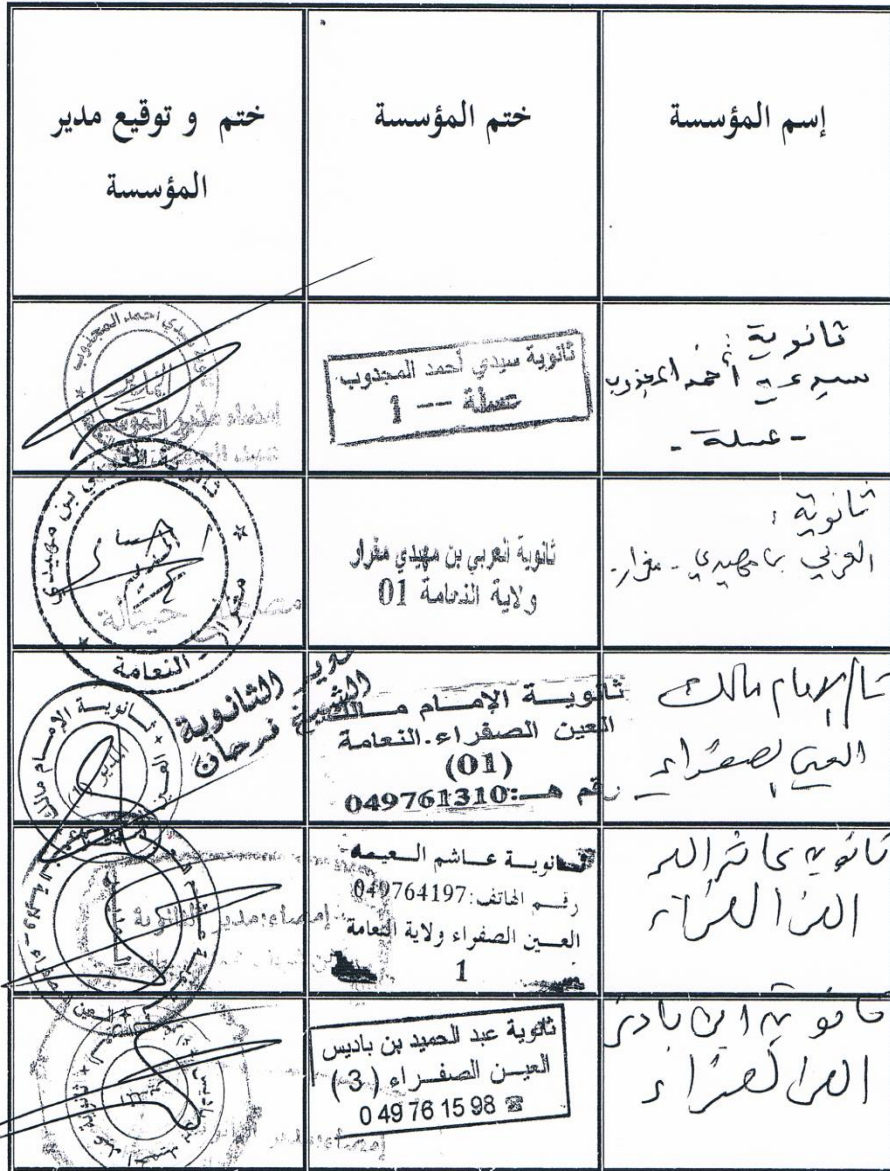 إسم المؤسسة
ختم المؤسسة
ختم و توقيع مدير
المؤسسة
ثانوية
سيدي أحمد المجذوب
- عسلة -
ثانوية سيدي أحمد المجدوب
عسلة -- 1
سيدي احمد المجذوب
المدير
إمضاء مدير المؤسسة
ثانوية :
العربي بن مهيدي - مغرار -
ثانوية العربي بن مهيدي مغرار
ولاية النعامة 01
بن مهيدي
مغرار - النعامة
ثا/الإمام مالك
العين الصفراء
ثانويـــة الإمــام مــالك
العين الصفراء.النعامة
(01)
رقم هـــ:049761310
مدير الثانوية
الشيخ فرحان
ثـانويـة الإمـام مالك
المدير
ثانوية
العين الصفراء
ثـانويـة هـاشم
رقـم الهاتف:049764197
العـين الصفراء ولاية النعامة
1
إمضاء:مدير الثانوية
ثانوية ابن باديس
العين الصفراء
ثانوية عبد الحميد بن باديس
العيـن الصفـراء ( 3 )
☎ 0 49 76 15 98
إمضاء:مدير